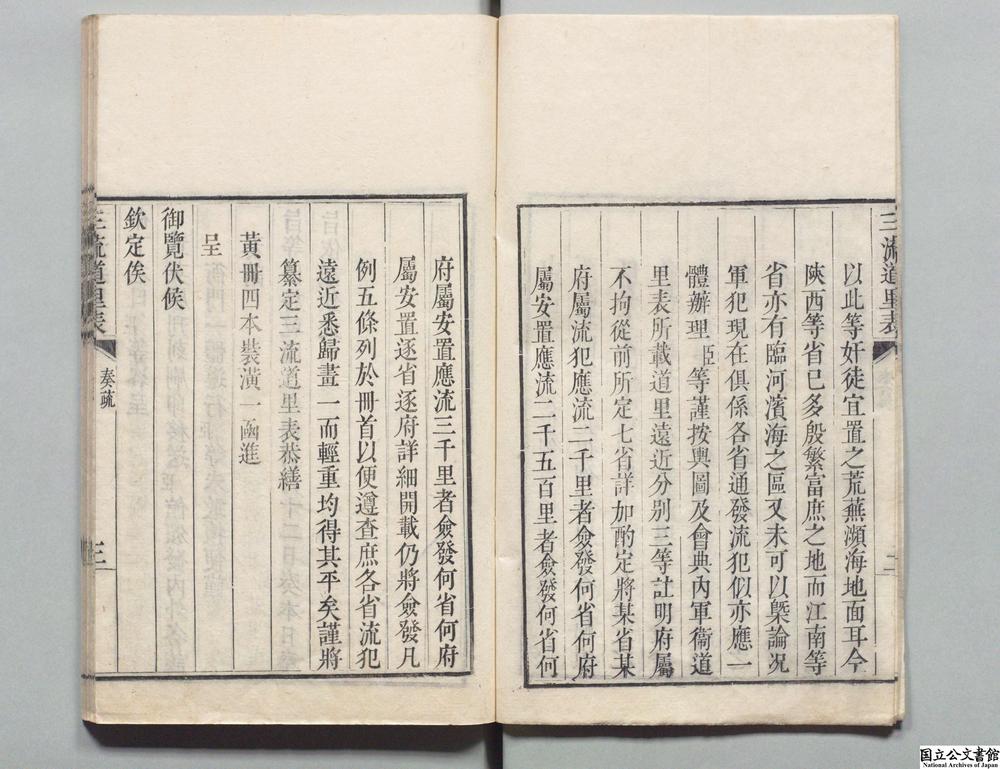 三流道里表
二
以此等奸徒宜置之荒蕪瀕海地面耳今
陝西等省已多殷繁富庶之地而江南等
省亦有臨河濱海之區又未可以槩論况
軍犯現在俱係各省通發流犯似亦應一
體辦理臣等謹按輿圖及會典內軍衞道
里表所載道里遠近分别三等註明府屬
不拘從前所定七省詳加酌定將某省某
府屬流犯應流二千里者僉發何省何府
屬安置應流二千五百里者僉發何省何
府屬安置應流三千里者僉發何省何府
屬安置逐省逐府詳細開載仍將僉發凡
例五條列於冊首以便遵查庶各省流犯
遠近悉歸畫一而輕重均得其平矣謹將
纂定三流道里表恭繕
黃冊四本裝潢一凾進
呈
御覽伏候
欽定俟
三流道里表
奏疏
三
国立公文書館
National Archives of Japan